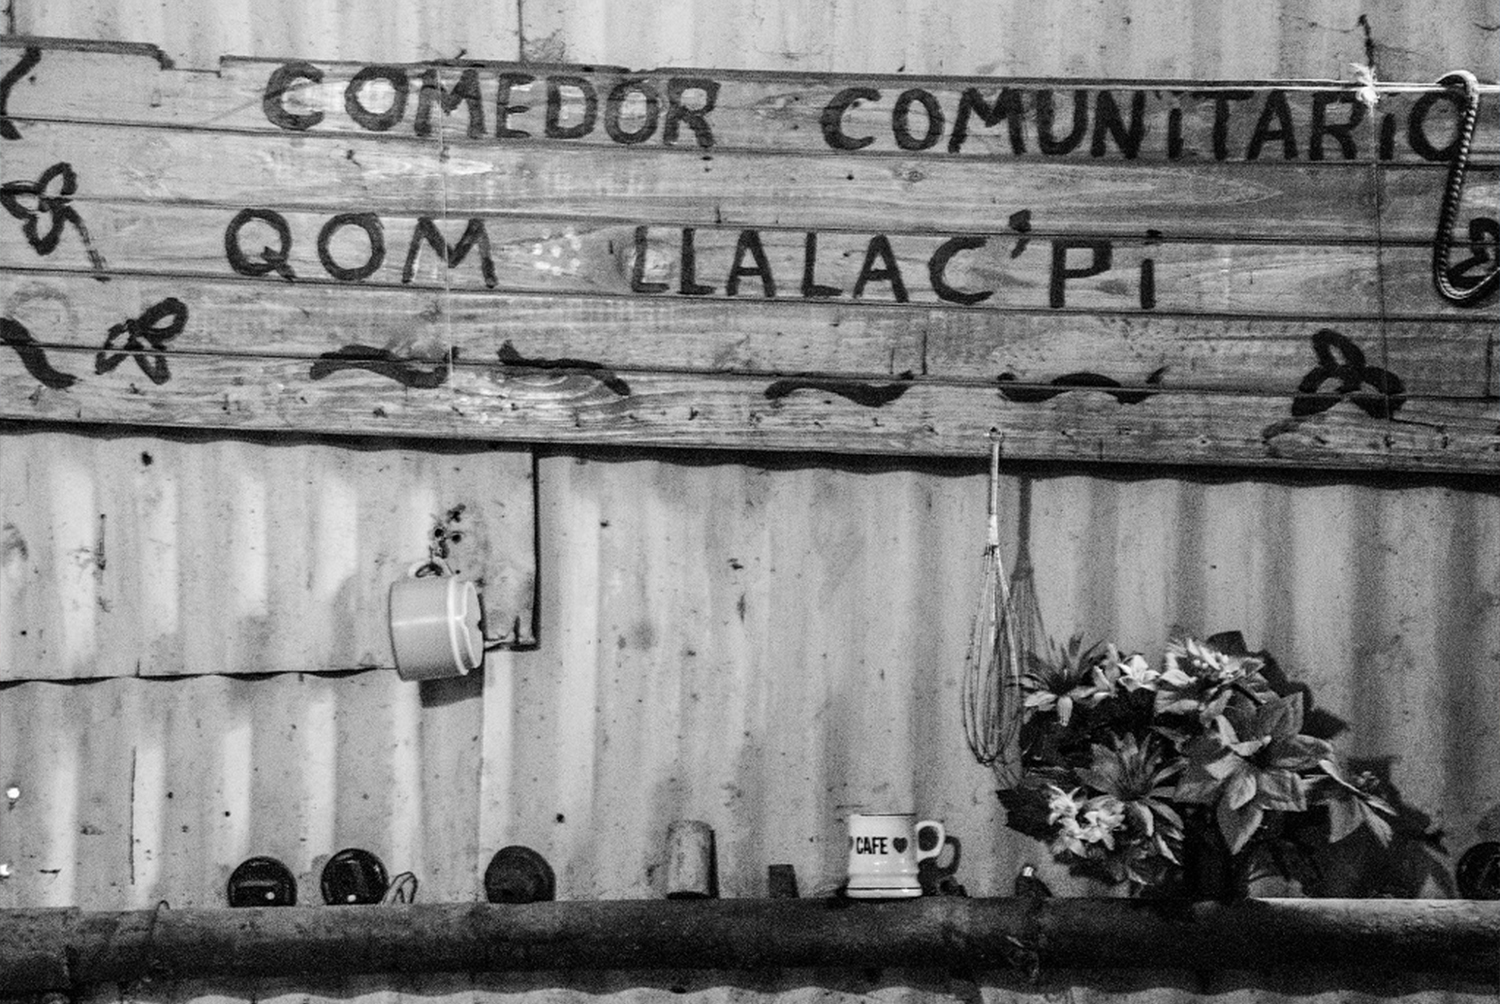 COMEDOR COMUNiTARiO
QOM LLALAC'Pi
CAFE